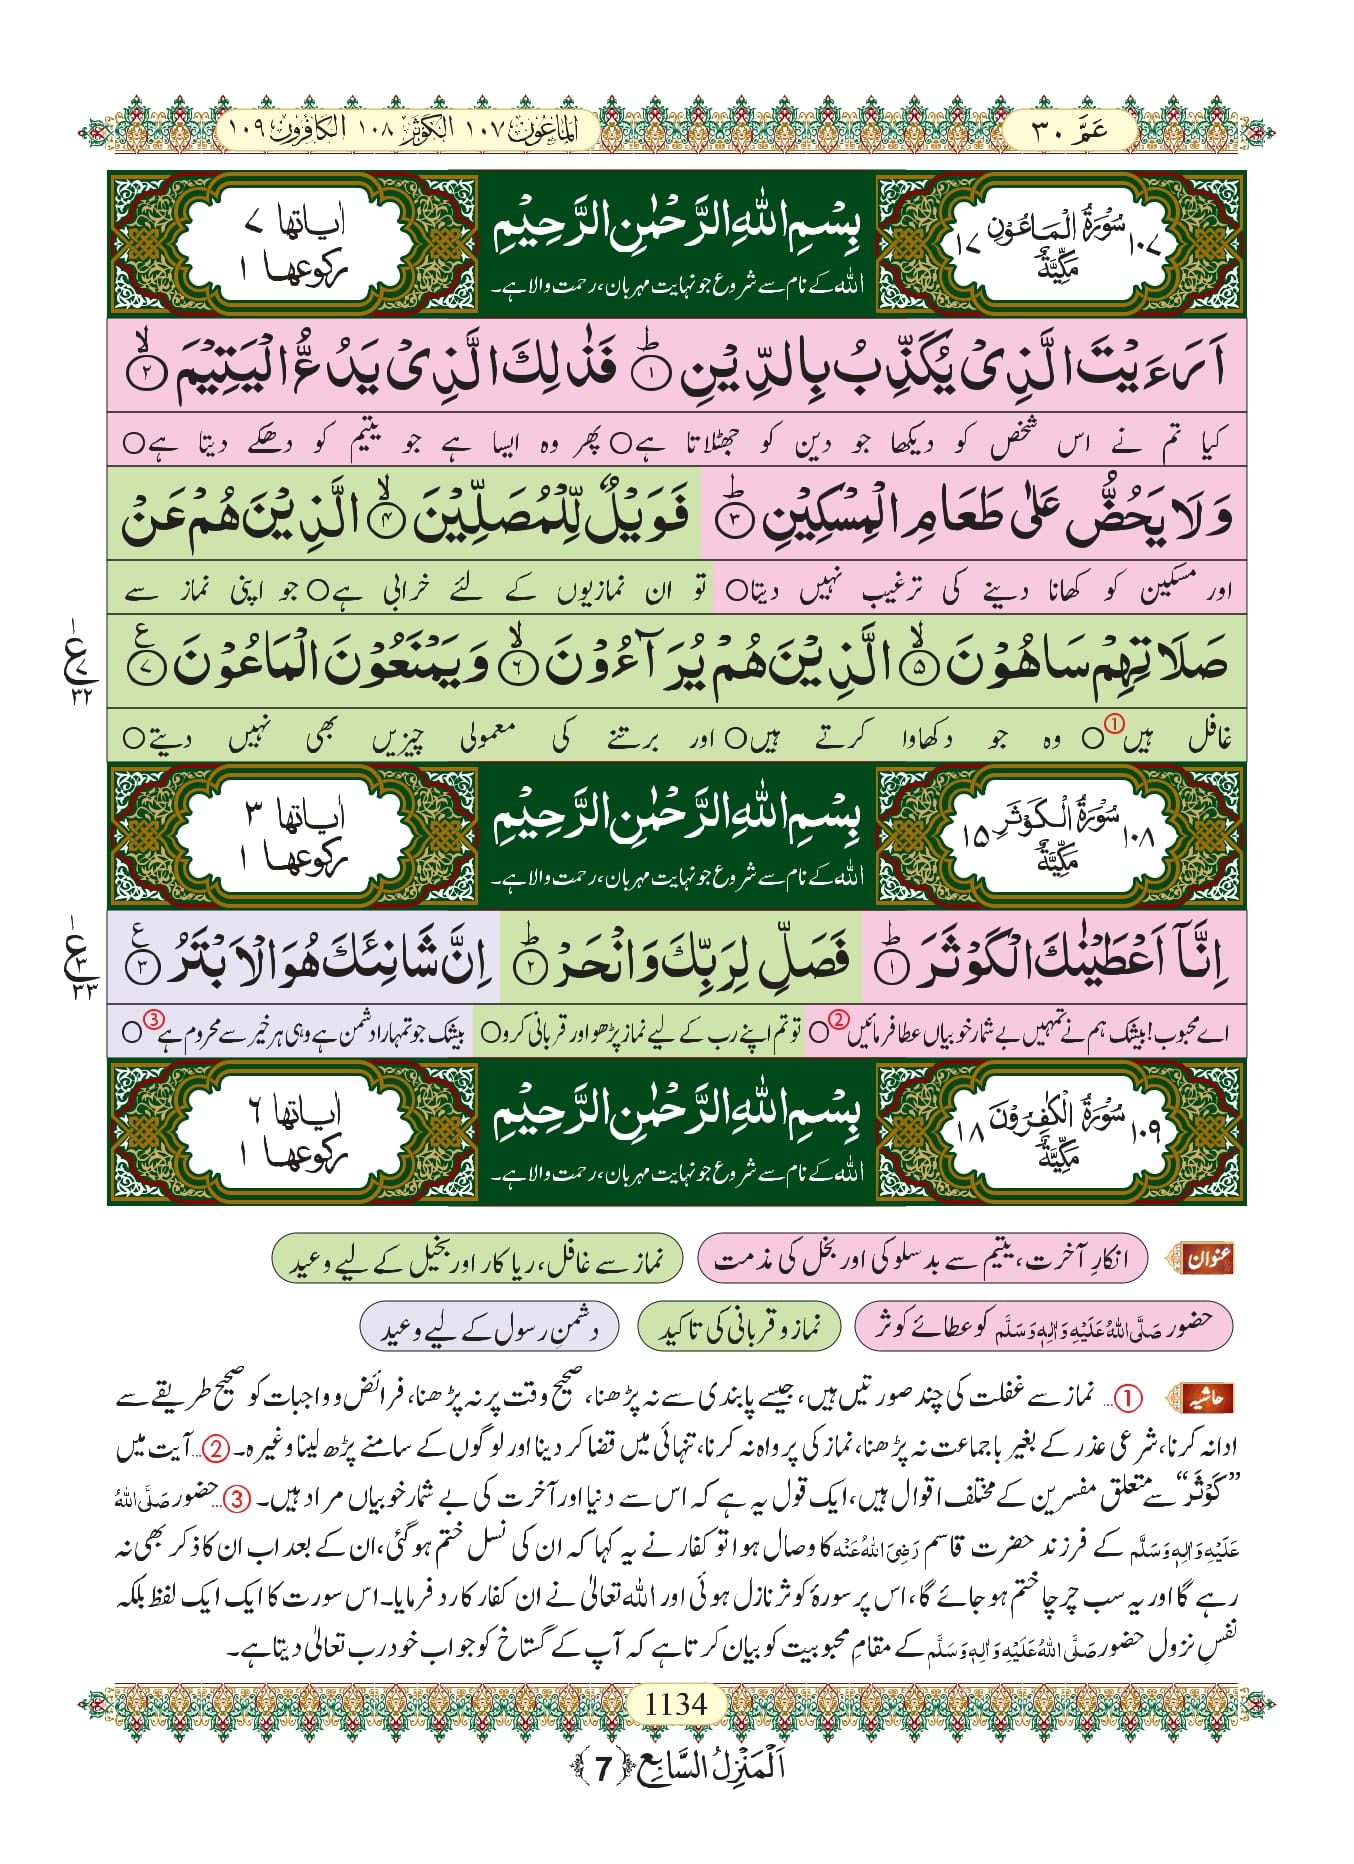 عَمَّ ٣٠
الماعون ١٠٧ الكوثر ١٠٨ الكافرون ١٠٩
١٠٧ سُوْرَةُ الْمَاعُوْنِ مَكِّيَّةٌ ١٧
بِسْمِ اللّٰهِ الرَّحْمٰنِ الرَّحِیْمِ
اللہ کے نام سے شروع جو نہایت مہربان، رحمت والا ہے۔
اٰیاتها ٧
رکوعها ١
اَرَءَیْتَ الَّذِیْ یُكَذِّبُ بِالدِّیْنِؕ۝۱ فَذٰلِكَ الَّذِیْ یَدُعُّ الْیَتِیْمَۙ۝۲
کیا تم نے اس شخص کو دیکھا جو دین کو جھٹلاتا ہے○ پھر وہ ایسا ہے جو یتیم کو دھکے دیتا ہے○
وَ لَا یَحُضُّ عَلٰى طَعَامِ الْمِسْكِیْنِؕ۝۳ فَوَیْلٌ لِّلْمُصَلِّیْنَۙ۝۴ الَّذِیْنَ هُمْ عَنْ
اور مسکین کو کھانا دینے کی ترغیب نہیں دیتا○ تو ان نمازیوں کے لئے خرابی ہے○ جو اپنی نماز سے
صَلَاتِهِمْ سَاهُوْنَۙ۝۵ الَّذِیْنَ هُمْ یُرَآءُوْنَۙ۝۶ وَ یَمْنَعُوْنَ الْمَاعُوْنَ۠۝۷
ع ١ ٧ ٣٢
غافل ہیں①○ وہ جو دکھاوا کرتے ہیں○ اور برتنے کی معمولی چیزیں بھی نہیں دیتے○
١٠٨ سُوْرَةُ الْكَوْثَرِ مَكِّيَّةٌ ١٥
بِسْمِ اللّٰهِ الرَّحْمٰنِ الرَّحِیْمِ
اللہ کے نام سے شروع جو نہایت مہربان، رحمت والا ہے۔
اٰیاتها ٣
رکوعها ١
اِنَّاۤ اَعْطَیْنٰكَ الْكَوْثَرَؕ۝۱ فَصَلِّ لِرَبِّكَ وَ انْحَرْؕ۝۲ اِنَّ شَانِئَكَ هُوَ الْاَبْتَرُ۠۝۳
ع ١ ٣ ٣٣
اے محبوب! بیشک ہم نے تمہیں بے شمار خوبیاں عطا فرمائیں②○ تو تم اپنے رب کے لیے نماز پڑھو اور قربانی کرو○ بیشک جو تمہارا دشمن ہے وہی ہر خیر سے محروم ہے③○
١٠٩ سُوْرَةُ الْكٰفِرُوْنَ مَكِّيَّةٌ ١٨
بِسْمِ اللّٰهِ الرَّحْمٰنِ الرَّحِیْمِ
اللہ کے نام سے شروع جو نہایت مہربان، رحمت والا ہے۔
اٰیاتها ٦
رکوعها ١
عنوان انکارِ آخرت، یتیم سے بدسلوکی اور بخل کی مذمت نماز سے غافل، ریاکار اور بخیل کے لیے وعید
حضور صَلَّی اللہُ عَلَیْہِ وَاٰلِہٖ وَسَلَّم کو عطائے کوثر نماز و قربانی کی تاکید دشمنِ رسول کے لیے وعید
حاشیہ ①... نماز سے غفلت کی چند صورتیں ہیں، جیسے پابندی سے نہ پڑھنا، صحیح وقت پر نہ پڑھنا، فرائض و واجبات کو صحیح طریقے سے
ادا نہ کرنا، شرعی عذر کے بغیر باجماعت نہ پڑھنا، نماز کی پرواہ نہ کرنا، تنہائی میں قضا کر دینا اور لوگوں کے سامنے پڑھ لینا وغیرہ۔ ②... آیت میں
”کَوْثَر“ سے متعلق مفسرین کے مختلف اقوال ہیں، ایک قول یہ ہے کہ اس سے دنیا اور آخرت کی بے شمار خوبیاں مراد ہیں۔ ③... حضور صَلَّی اللہُ
عَلَیْہِ وَاٰلِہٖ وَسَلَّم کے فرزند حضرت قاسم رَضِیَ اللہُ عَنْہ کا وصال ہوا تو کفار نے یہ کہا کہ ان کی نسل ختم ہوگئی، ان کے بعد اب ان کا ذکر بھی نہ
رہے گا اور یہ سب چرچا ختم ہو جائے گا، اس پر سورۂ کوثر نازل ہوئی اور اللہ تعالیٰ نے ان کفار کا رد فرمایا۔ اس سورت کا ایک ایک لفظ بلکہ
نفسِ نزول حضور صَلَّی اللہُ عَلَیْہِ وَاٰلِہٖ وَسَلَّم کے مقامِ محبوبیت کو بیان کرتا ہے کہ آپ کے گستاخ کو جواب خود رب تعالیٰ دیتا ہے۔
1134
اَلْمَنْزِلُ السَّابِع ﴿7﴾